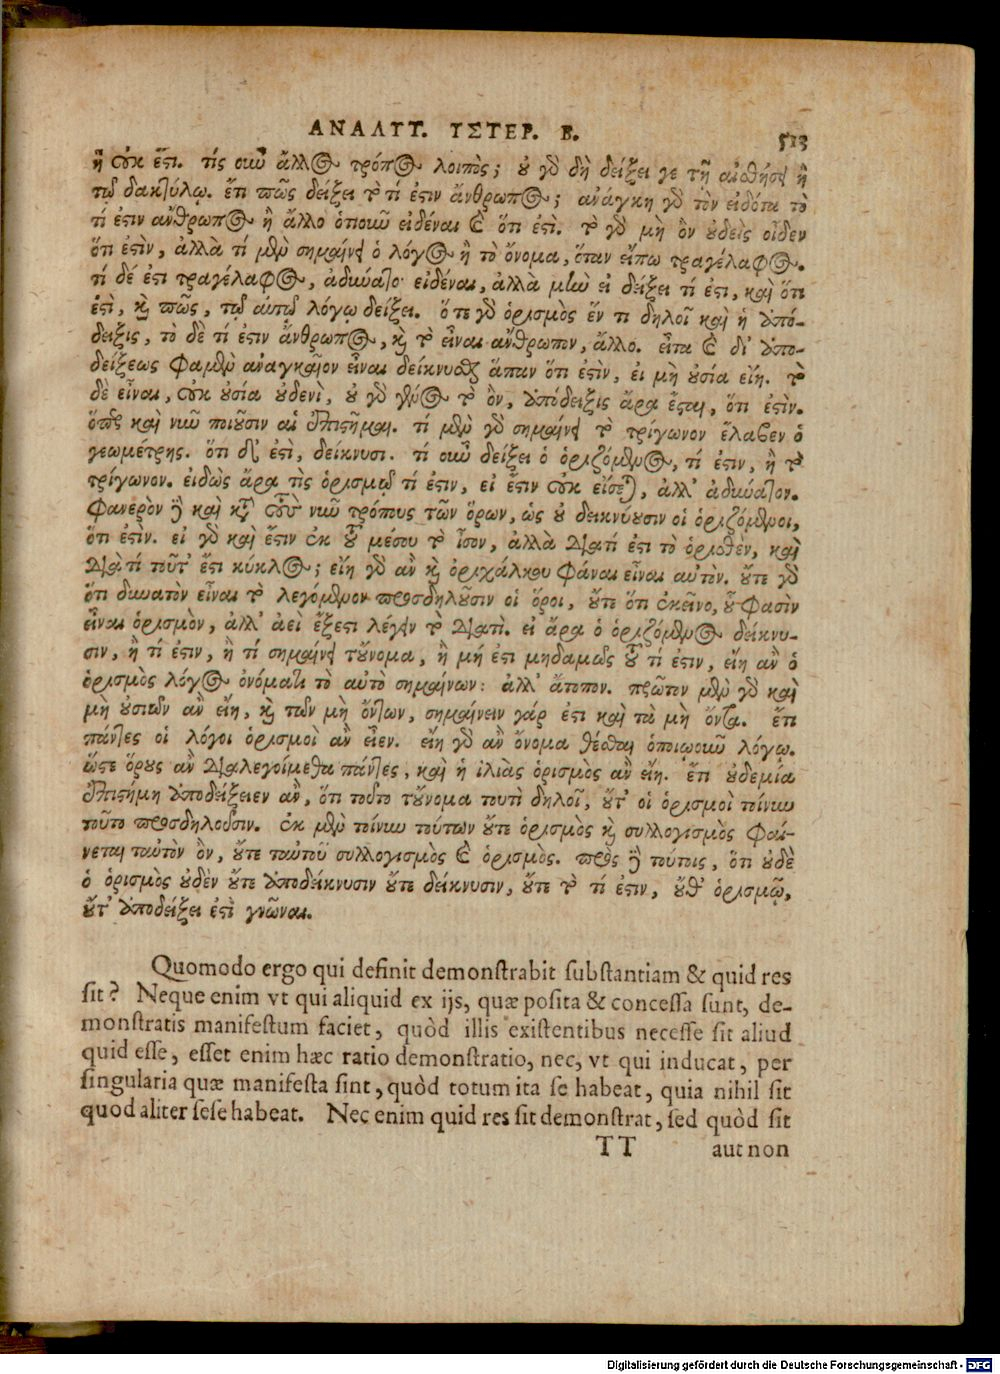 ΑΝΑΛΥΤ. ΥΣΤΕΡ. Β. 513
ἢ οὐκ ἔστι. τίς οὖν ἄλλος τρόπος λοιπὸς; οὐ γὸ δὴ δείξει γε τῇ αἰσθήσει ἢ
τῷ δακτύλῳ. ἔτι πῶς δείξει τὸ τί ἐστιν ἄνθρωπος; ἀνάγκη γὸ τὸν εἰδότα τὸ
τί ἐστιν ἄνθρωπος ἢ ἄλλο ὁτιοῦν εἰδέναι καὶ ὅτι ἐστὶ. τὸ γὸ μὴ ὂν οὐδεὶς οἶδεν
ὅτι ἐστὶν, ἀλλὰ τί μὲν σημαίνει ὁ λόγος ἢ τὸ ὄνομα, ὅταν εἴπω τραγέλαφος.
τί δέ ἐστι τραγέλαφος, ἀδύνατον εἰδέναι, ἀλλὰ μὴν εἰ δείξει τί ἐστι, καὶ ὅτι
ἐστὶ, καὶ πῶς, τῷ αὐτῷ λόγῳ δείξει. ὅτε γὸ ὁρισμὸς ἕν τι δηλοῖ καὶ ἡ ἀπό-
δειξις, τὸ δὲ τί ἐστιν ἄνθρωπος, καὶ τὸ εἶναι ἄνθρωπον, ἄλλο. εἶτα καὶ δι' ἀπο-
δείξεως φαμὲν ἀναγκαῖον εἶναι δείκνυσθαι ἅπαν ὅτι ἐστὶν, εἰ μὴ οὐσία εἴη. τὸ
δὲ εἶναι, οὐκ οὐσία οὐδενὶ, οὐ γὸ γένος τὸ ὂν, ἀπόδειξις ἄρα ἔσται, ὅτι ἐστὶν.
ὅπερ καὶ νῦν ποιοῦσιν αἱ ἐπιστῆμαι. τί μὲν γὸ σημαίνει τὸ τρίγωνον ἔλαβεν ὁ
γεωμέτρης. ὅτι δ' ἐστὶ, δείκνυσι. τί οὖν δείξει ὁ ὁριζόμενος, τί ἐστιν, ἢ τὸ
τρίγωνον. εἰδὼς ἄρα τὶς ὁρισμῷ τί ἐστιν, εἰ ἔστιν οὐκ εἴσεται, ἀλλ' ἀδύνατον.
Φανερὸν δὲ καὶ κατὰ τοὺς νῦν τρόπους τῶν ὅρων, ὡς οὐ δεικνύουσιν οἱ ὁριζόμενοι,
ὅτι ἐστὶν. εἰ γὸ καὶ ἔστιν ἐκ τοῦ μέσου τὸ ἴσον, ἀλλὰ διατί ἐστι τὸ ὁρισθὲν, καὶ
διὰ τί τοῦτ' ἔστι κύκλος; εἴη γὸ ἂν καὶ ὀριχάλκου φάναι εἶναι αὐτὸν. οὔτε γὸ
ὅτι δυνατὸν εἶναι τὸ λεγόμενον προσδηλοῦσιν οἱ ὅροι, οὔτε ὅτι ἐκεῖνο, οὗ φασὶν
εἶναι ὁρισμὸν, ἀλλ' ἀεὶ ἔξεστι λέγειν τὸ διατὶ. εἰ ἄρα ὁ ὁριζόμενος δείκνυ-
σιν, ἢ τί ἐστιν, ἢ τί σημαίνει τοὔνομα, ἢ μή ἐστι μηδαμῶς τοῦ τί ἐστιν, εἴη ἂν ὁ
ὁρισμὸς λόγος ὀνόματι τὸ αὐτὸ σημαίνων: ἀλλ' ἄτοπον. πρῶτον μὲν γὸ καὶ
μὴ οὐσιῶν ἂν εἴη, καὶ τῶν μὴ ὄντων, σημαίνειν γάρ ἐστι καὶ τὰ μὴ ὄντα. ἔτι
πάντες οἱ λόγοι ὁρισμοὶ ἂν εἶεν. εἴη γὸ ἂν ὄνομα θέσθαι ὁποιῳοῦν λόγω.
ὥστε ὅρους ἂν διαλεγοίμεθα πάντες, καὶ ἡ ἰλιὰς ὁρισμὸς ἂν εἴη. ἔτι οὐδεμία
ἐπιστήμη ἀποδείξειεν ἂν, ὅτι τοῦτο τοὔνομα τουτὶ δηλοῖ, οὔτ' οἱ ὁρισμοὶ τοίνυν
τοῦτο προσδηλοῦσιν. ἐκ μὲν τοίνυν τούτων οὔτε ὁρισμὸς καὶ συλλογισμὸς φαί-
νεται ταὐτὸν ὂν, οὔτε ταὐτοῦ συλλογισμὸς καὶ ὁρισμὸς. πρὸς δὲ τούτοις, ὅτι οὐδὲ
ὁ ὁρισμὸς οὐδὲν οὔτε ἀποδείκνυσιν οὔτε δείκνυσιν, οὔτε τὸ τί ἐστιν, οὔθ' ὁρισμῷ,
οὔτ' ἀποδείξει ἐστὶ γνῶναι.
Quomodo ergo qui definit demonstrabit substantiam & quid res
sit? Neque enim vt qui aliquid ex ijs, quæ posita & concessa sunt, de-
monstratis manifestum faciet, quòd illis existentibus necesse sit aliud
quid esse, esset enim hæc ratio demonstratio, nec, vt qui inducat, per
singularia quæ manifesta sint, quòd totum ita se habeat, quia nihil sit
quod aliter sese habeat. Nec enim quid res sit demonstrat, sed quòd sit
TT aut non
Digitalisierung gefördert durch die Deutsche Forschungsgemeinschaft - DFG